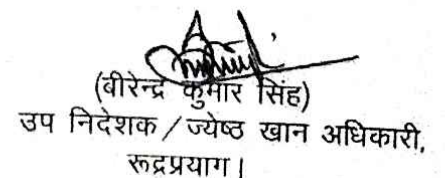 (बीरेन्द्र कुमार सिंह)
उप निदेशक / ज्येष्ठ खान अधिकारी,
रूद्रप्रयाग।